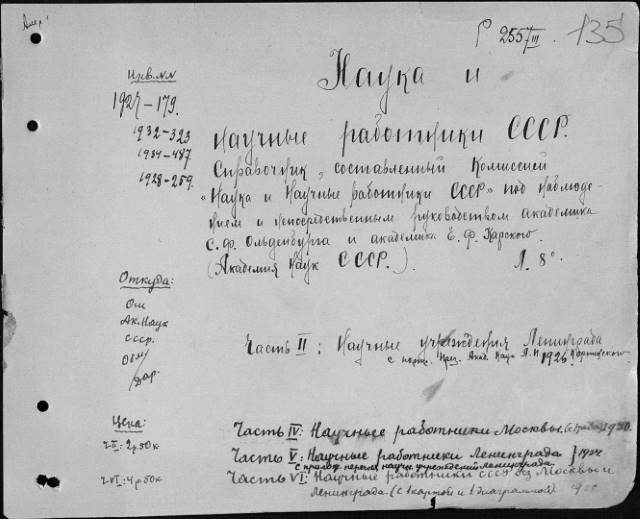 Р 2557 III. 135
Инв. NN
1927–179.
1932–323
1934–487
1928–259.
Наука и
Научные работники СССР.
Справочник, составленный Комиссией
"Наука и Научные работники СССР" под наблюде-
нием и непосредственным руководством академика
С. Ф. Ольденбурга и академика Е. Ф. Карского.
(Академия Наук СССР.) Л. 8°.
Откуда:
От
Ак. Наук
СССР.
Обм/
Дар.
Часть II: Научные учреждения Ленинграда
с портр. През. Акад. Наук А. П. Карпинского. 1926
Цена:
ч. II: 2р 50к
ч. VI: 4р 50к
Часть IV: Научные работники Москвы. 1930.
Часть V: Научные работники Ленинграда
с прилож. перечня научн. учреждений Ленинграда } 1934
Часть VI: Научные работники СССР без Москвы и
Ленинграда (с 1 картой и 1 диаграммой)